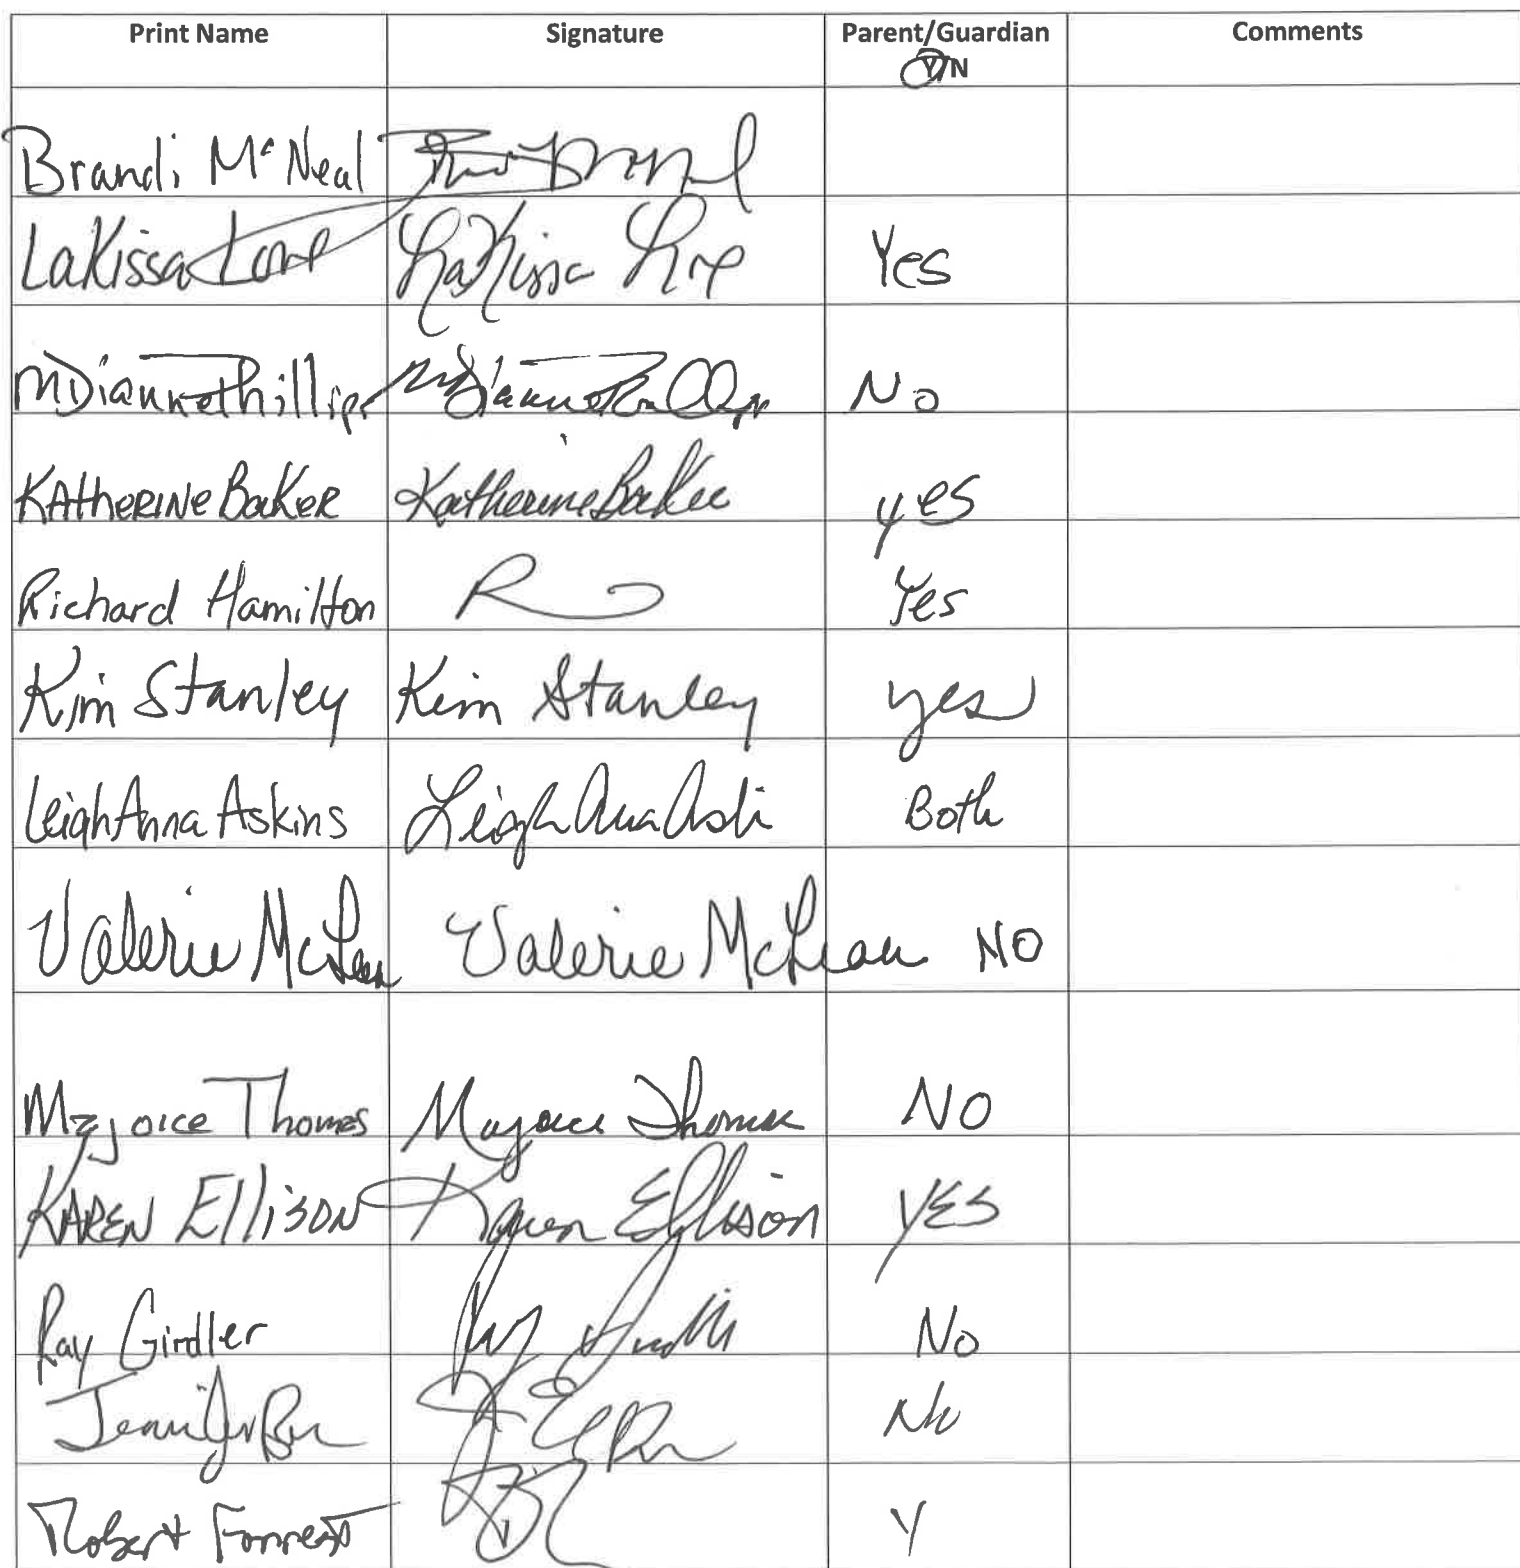 Print Name Signature Parent/Guardian Comments
Y/N
Brandi McNeal
LaKissa Love LaKissa Yes
MDianne Phillips MDianne Phillips No
KAtherINe BaKeR Katherine Baker yes
Richard Hamilton R Yes
Kim Stanley Kim Stanley yes
LeighAnna Askins LeighAnna Both
Valerie McLean Valerie McLean NO
Thomas Thomas NO
KAREN EllisON Karen Ellison YES
Ray Girdler Ray No
Jennifer No
Robert Forrest Y